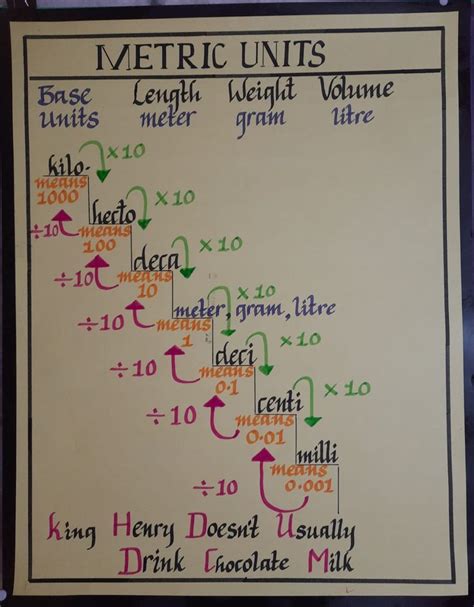 METRIC UNITS
Base Length Weight Volume
Units meter gram litre
kilo- ×10
means
1000
hecto ×10
÷10 means
100
deca ×10
÷10 means
10
meter, gram, litre ×10
÷10 means
1
deci ×10
÷10 means
0.1
centi ×10
÷10 means
0.01
milli
means
÷10 0.001
King Henry Doesn't Usually
Drink Chocolate Milk